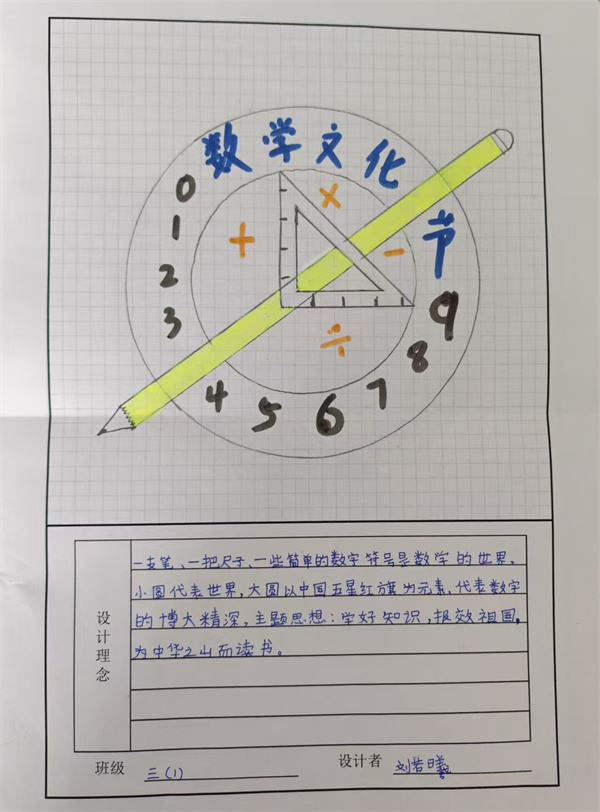 数学文化节
0
1
2
3
4
5
6
7
8
9
+
×
-
÷
设计理念
一支笔、一把尺子、一些简单的数字符号是数学的世界,
小圆代表世界,大圆以中国五星红旗为元素,代表数字
的博大精深,主题思想:学好知识,报效祖国,
为中华之山而读书。
班级 三(1) 设计者 刘若曦